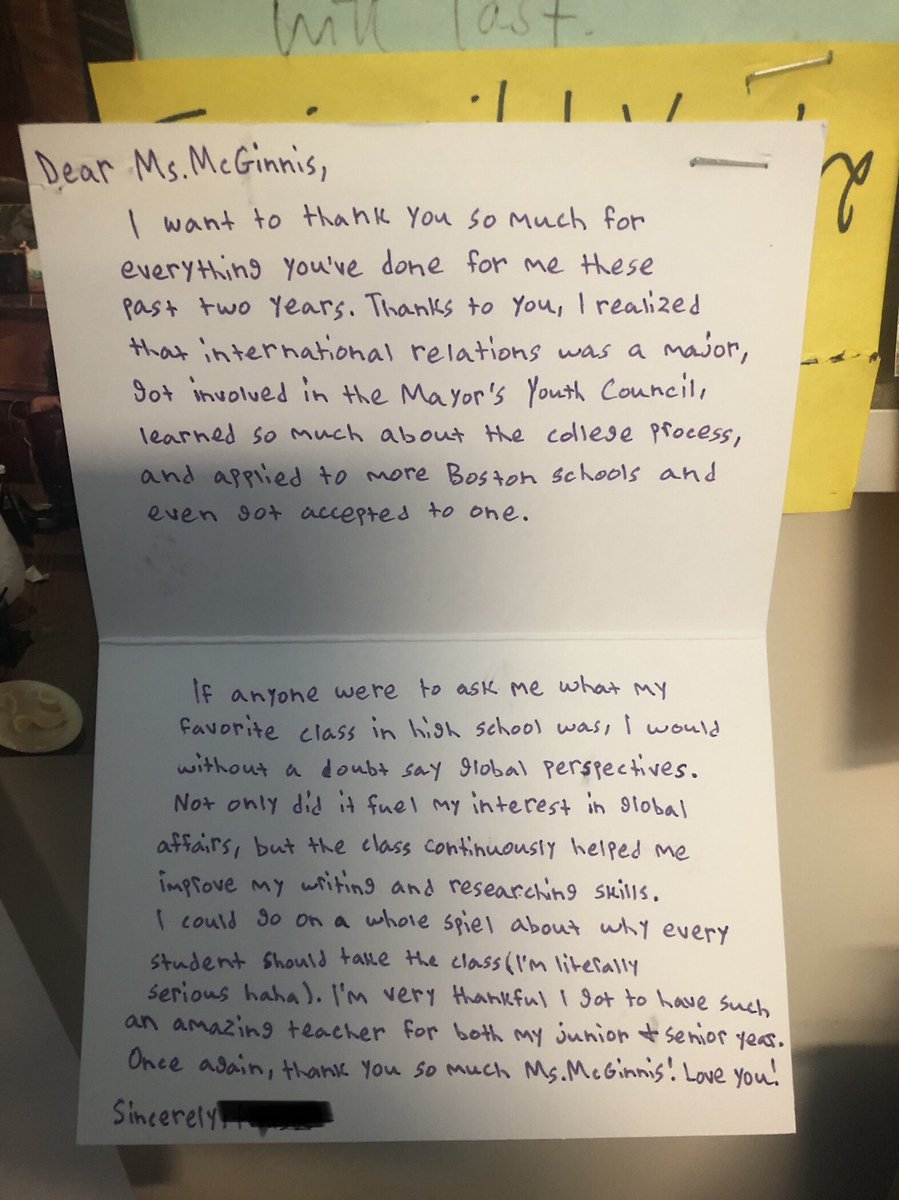 will last.
Dear Ms. McGinnis,
I want to thank you so much for
everything you've done for me these
past two years. Thanks to you, I realized
that international relations was a major,
got involved in the Mayor's Youth Council,
learned so much about the college process,
and applied to more Boston schools and
even got accepted to one.
If anyone were to ask me what my
favorite class in high school was, I would
without a doubt say global perspectives.
Not only did it fuel my interest in global
affairs, but the class continuously helped me
improve my writing and researching skills.
I could go on a whole spiel about why every
student should take the class (I'm literally
serious haha). I'm very thankful I got to have such
an amazing teacher for both my junior + senior year.
Once again, thank you so much Ms. McGinnis! Love you!
Sincerely,